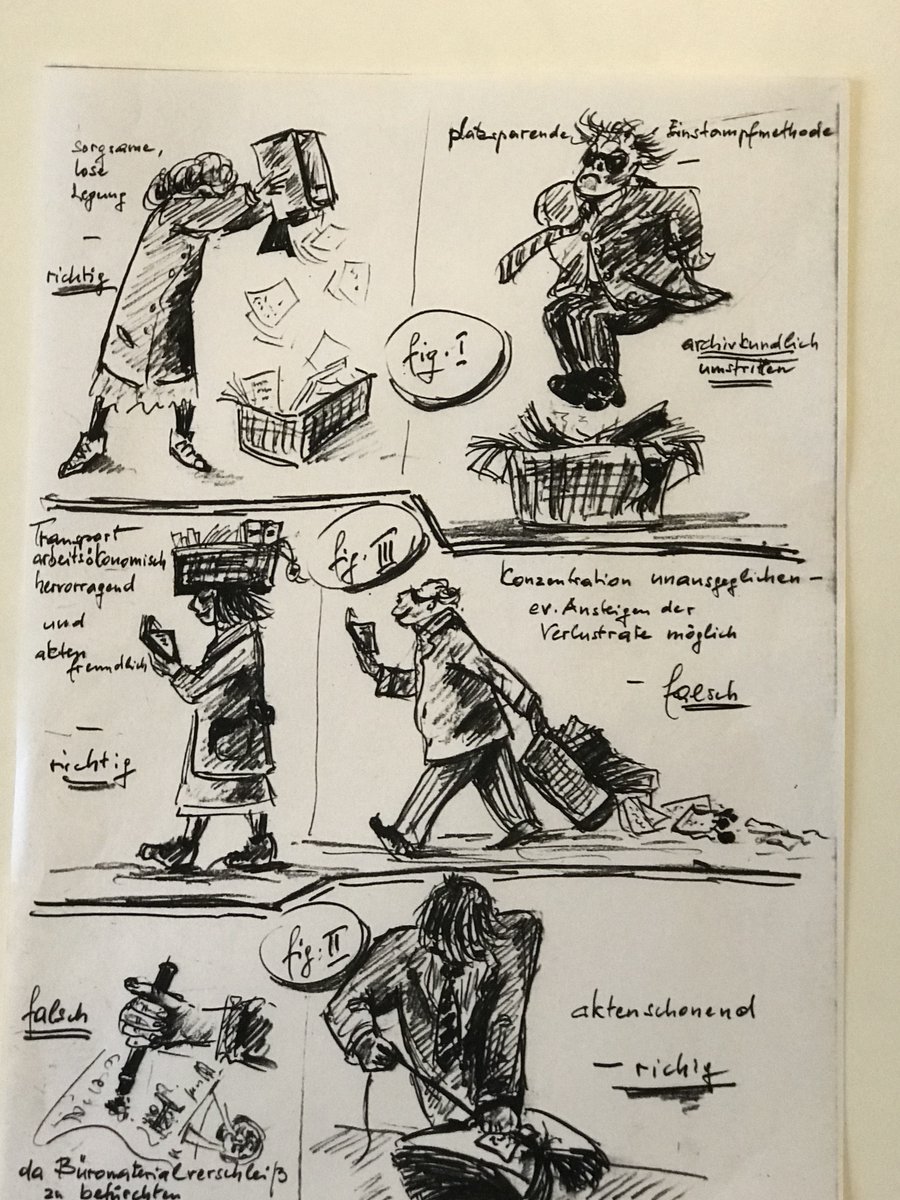 Sorgsame,
lose
Legung
–
richtig
platzsparende Einstampfmethode
–
archivkundlich
umstritten
fig. I
Transport
arbeitsökonomisch
hervorragend
und
akten
freundlich
–
richtig
fig. III
Konzentration unausgeglichen –
ev. Ansteigen der
Verlustrate möglich
– falsch
falsch
da Büromaterialverschleiß
zu befürchten
fig. II
aktenschonend
– richig